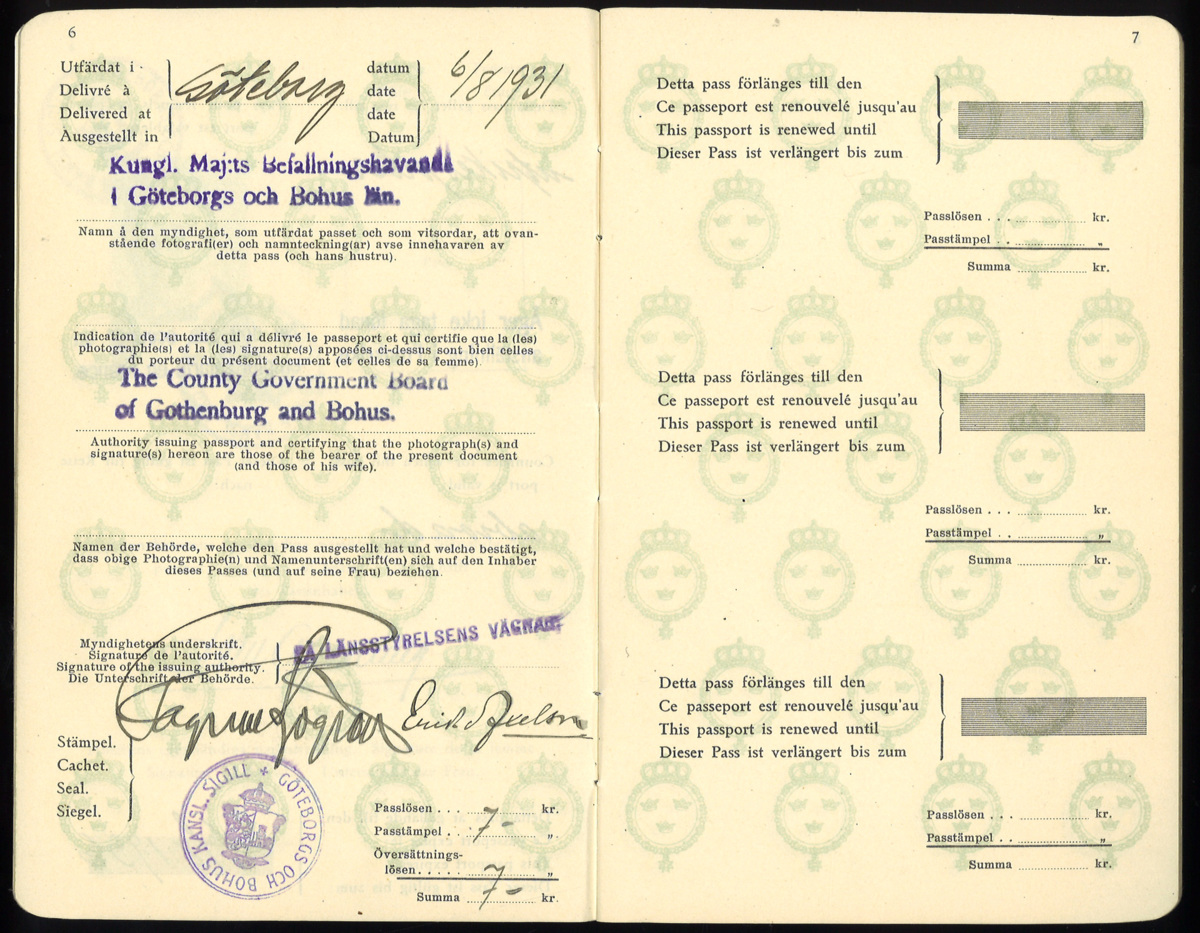 6
Utfärdat i
Delivré à
Delivered at
Ausgestellt in
Göteborg
datum
date
date
Datum
6/8 1931
Kungl. Maj:ts Befallningshavande
i Göteborgs och Bohus län.
Namn å den myndighet, som utfärdat passet och som vitsordar, att ovan-
stående fotografi(er) och namnteckning(ar) avse innehavaren av
detta pass (och hans hustru).
Indication de l'autorité qui a délivré le passeport et qui certifie que la (les)
photographie(s) et la (les) signature(s) apposées ci-dessus sont bien celles
du porteur du présent document (et celles de sa femme).
The County Government Board
of Gothenburg and Bohus.
Authority issuing passport and certifying that the photograph(s) and
signature(s) hereon are those of the bearer of the present document
(and those of his wife).
Namen der Behörde, welche den Pass ausgestellt hat und welche bestätigt,
dass obige Photographie(n) und Namenunterschrift(en) sich auf den Inhaber
dieses Passes (und auf seine Frau) beziehen.
Myndighetens underskrift.
Signature de l'autorité.
Signature of the issuing authority.
Die Unterschrift der Behörde.
PÅ LÄNSSTYRELSENS VÄGNAR:
Stämpel.
Cachet.
Seal.
Siegel.
GÖTEBORGS OCH BOHUS KANSL. SIGILL
Passlösen . . . 7- kr.
Passtämpel . . „
Översättnings-
lösen. . . . . . „
Summa 7- kr.
7
Detta pass förlänges till den
Ce passeport est renouvelé jusqu'au
This passport is renewed until
Dieser Pass ist verlängert bis zum
Passlösen . . . kr.
Passtämpel . . „
Summa kr.
Detta pass förlänges till den
Ce passeport est renouvelé jusqu'au
This passport is renewed until
Dieser Pass ist verlängert bis zum
Passlösen . . . kr.
Passtämpel . . „
Summa kr.
Detta pass förlänges till den
Ce passeport est renouvelé jusqu'au
This passport is renewed until
Dieser Pass ist verlängert bis zum
Passlösen . . . kr.
Passtämpel . . „
Summa kr.